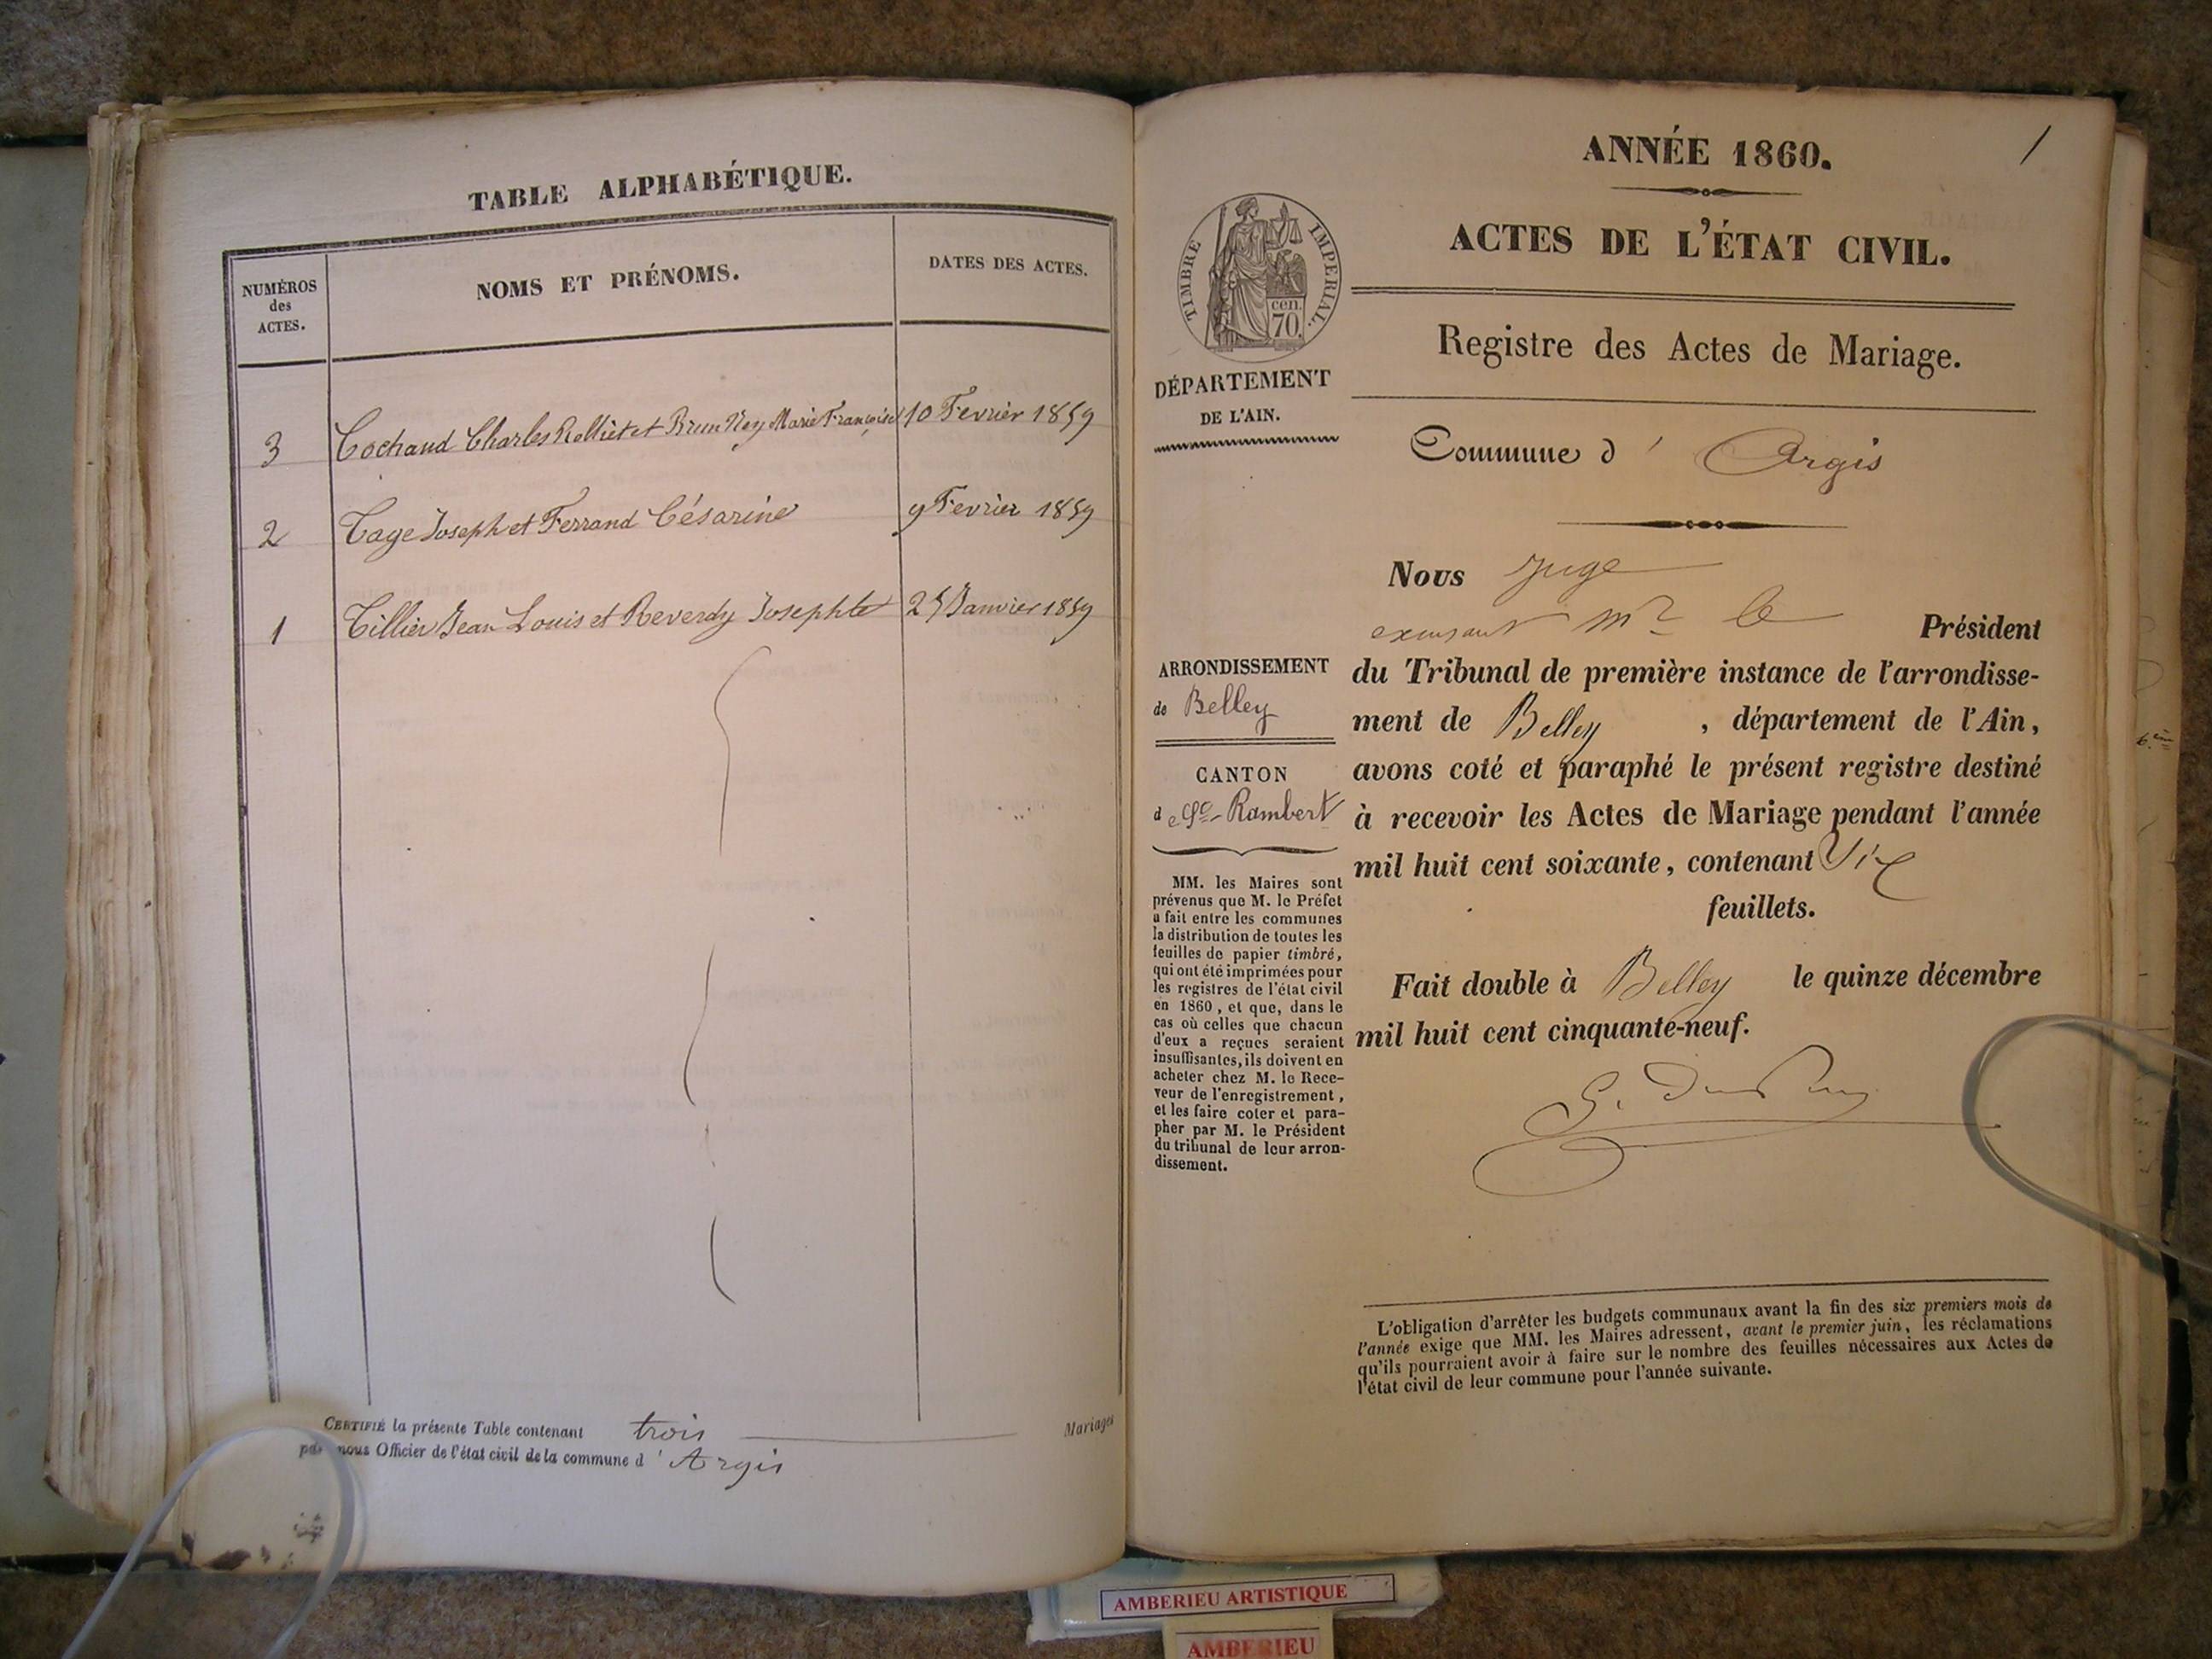 TABLE ALPHABÉTIQUE.
NUMÉROS
des
ACTES.
NOMS ET PRÉNOMS.
DATES DES ACTES.
3 Cochand Charles Rolliet et Brun Ney Marie Françoise 10 Fevrier 1859
2 Cage Joseph et Ferrand Césarine 9 Fevrier 1859
1 Tillier Jean Louis et Reverdy Josephte 25 Janvier 1859
CERTIFIÉ la présente Table contenant trois Mariages
par nous Officier de l'état civil de la commune d'Argis
1
ANNÉE 1860.
ACTES DE L'ÉTAT CIVIL.
Registre des Actes de Mariage.
TIMBRE IMPERIAL.
cen.
70.
DÉPARTEMENT
DE L'AIN.
Commune d'Argis
ARRONDISSEMENT
de Belley
CANTON
de St Rambert
MM. les Maires sont
prévenus que M. le Préfet
a fait entre les communes
la distribution de toutes les
feuilles de papier timbré,
qui ont été imprimées pour
les registres de l'état civil
en 1860, et que, dans le
cas où celles que chacun
d'eux a reçues seraient
insuffisantes, ils doivent en
acheter chez M. le Rece-
veur de l'enregistrement,
et les faire coter et para-
pher par M. le Président
du tribunal de leur arron-
dissement.
Nous Juge
Mr le Président
du Tribunal de première instance de l'arrondisse-
ment de Belley, département de l'Ain,
avons coté et paraphé le présent registre destiné
à recevoir les Actes de Mariage pendant l'année
mil huit cent soixante, contenant Six
feuillets.
Fait double à Belley le quinze décembre
mil huit cent cinquante-neuf.
L'obligation d'arrêter les budgets communaux avant la fin des six premiers mois de
l'année exige que MM. les Maires adressent, avant le premier juin, les réclamations
qu'ils pourraient avoir à faire sur le nombre des feuilles nécessaires aux Actes de
l'état civil de leur commune pour l'année suivante.
AMBERIEU ARTISTIQUE
AMBERIEU